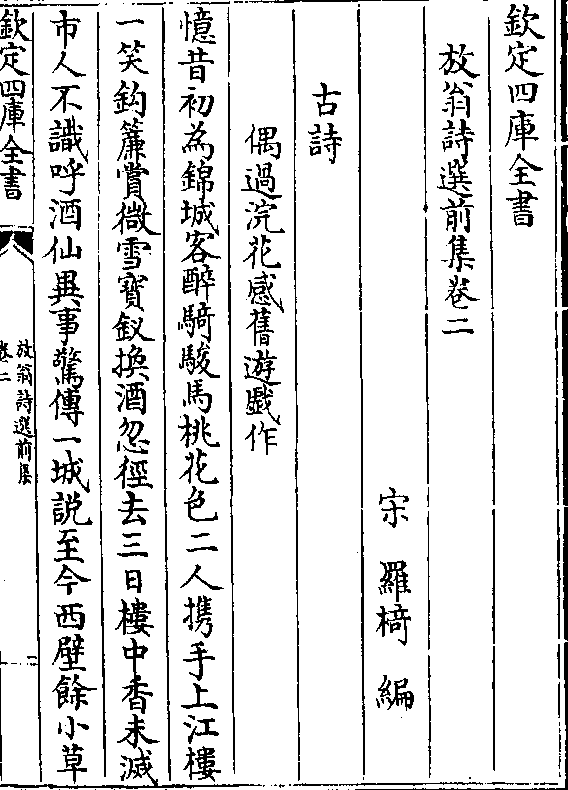 欽定四庫全書
放翁詩選前集卷二
宋 羅椅 編
古詩
偶過浣花感舊遊戲作
憶昔初為錦城客醉騎駿馬桃花色二人攜手上江樓
一笑鈎簾賞微雪寶釵換酒忽徑去三日樓中香未滅
市人不識呼酒仙異事驚傳一城說至今西壁餘小草
欽定四庫全書
放翁詩選前集
卷二
一